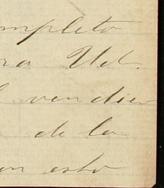 mpleto
ra Ud.
l vendien
de la
on esto